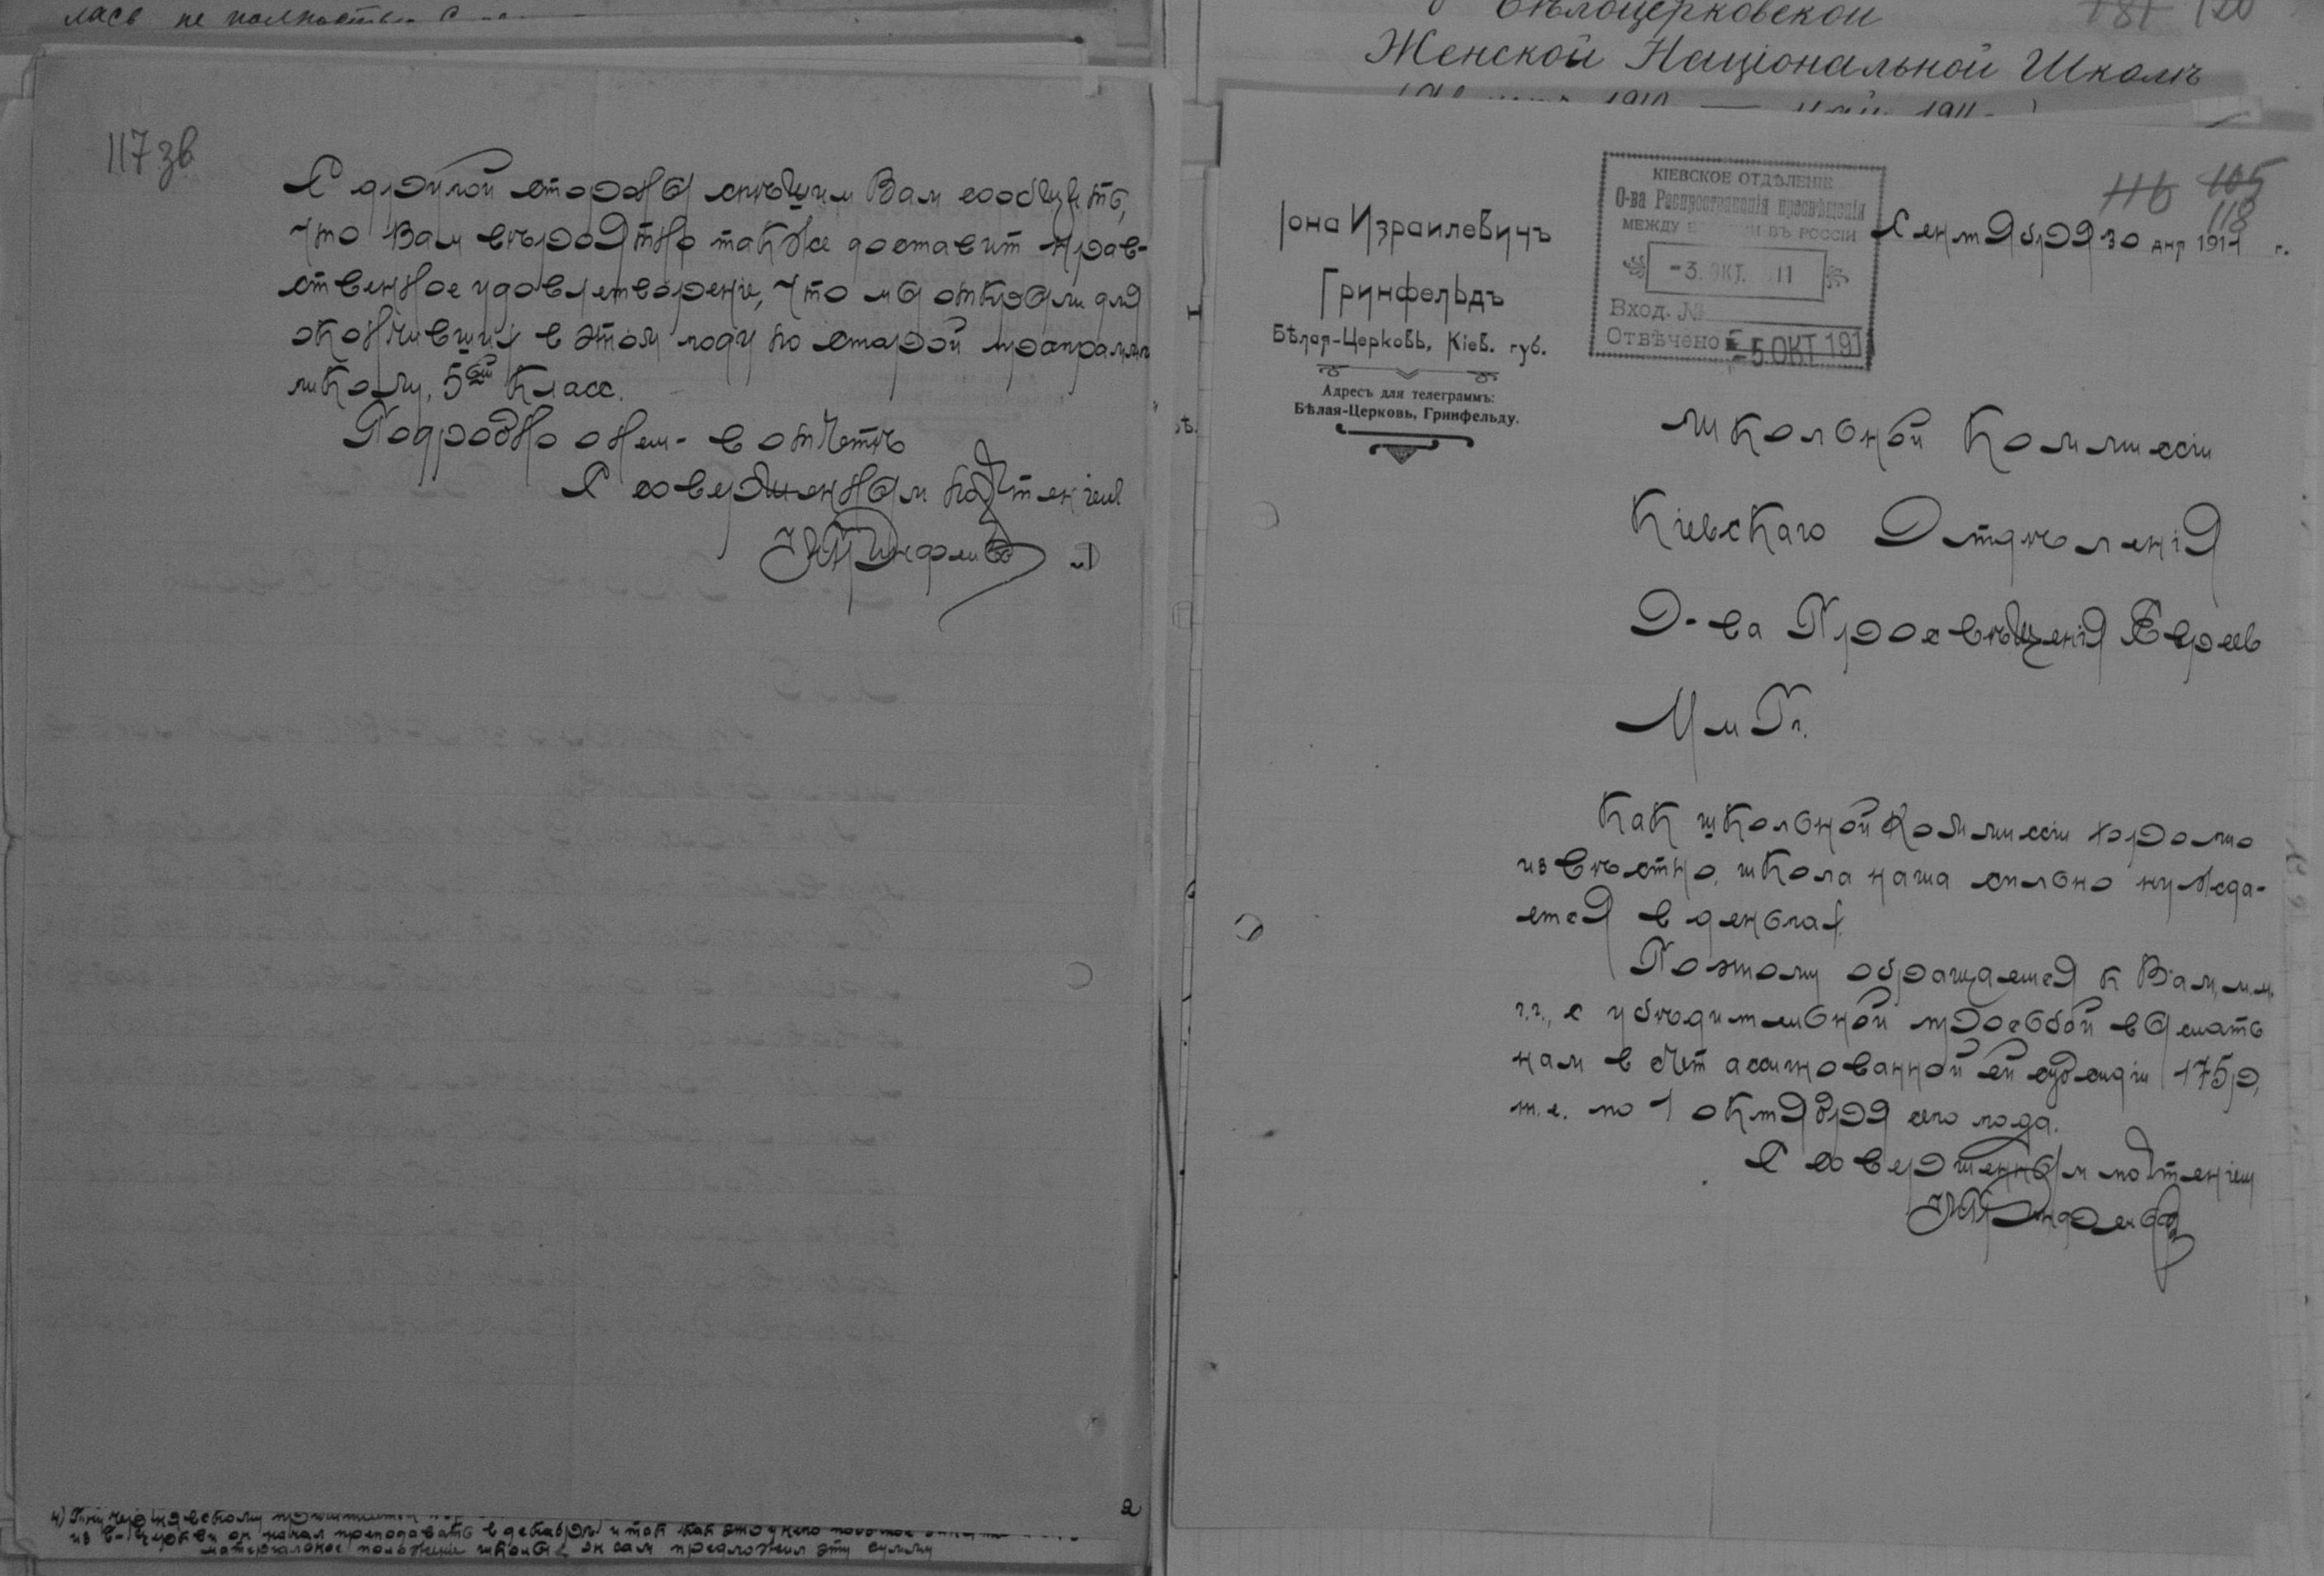 117 зв
С другой стороны спѣшим Вам сообщить,
что Вам вѣроятно также доставит нрав-
ственное удовлетвореніе, что мы открыли для
окончивших в этом году по старой программѣ
школу, 5ый класс.
Подробно о нем - в отчетѣ
С совершенным почтеніем
ІГринфельд
4)
из Б-Церкви он начал преподавать в декабрѣ и так как это у него
матерьяльное положеніе школы, он сам предложил эту сумму
2
лась не полностью с
Бѣлоцерковской
Женской Національной Школѣ
1910 — Май 1911
181 120
116 105
118
Іона Израилевичъ
Гринфельдъ
Бѣлая-Церковь, Кіев. губ.
Адресъ для телеграммъ:
Бѣлая-Церковь, Гринфельду.
КІЕВСКОЕ ОТДѢЛЕНІЕ
О-ва Распространенія просвѣщенія
МЕЖДУ ЕВРЕЯМИ ВЪ РОССІИ
-3. ОКТ. 11
Вход. №
Отвѣчено -5. ОКТ 1911
Сентября 30 дня 1911 г.
Школьной Коммиссіи
Кіевскаго Отдѣленія
О-ва Просвѣщенія Евреев
М м Г г.
Как школьной Коммиссіи хорошо
извѣстно, школа наша сильно нужда-
ется в деньгах.
Поэтому обращаемся к Вам, м.м.
г.г., с убѣдительной просьбой выслать
нам в счет ассигнованной ей субсидіи 175 р,
т.е. по 1 октября сего года.
С совершенным почтеніем
ІГринфельд